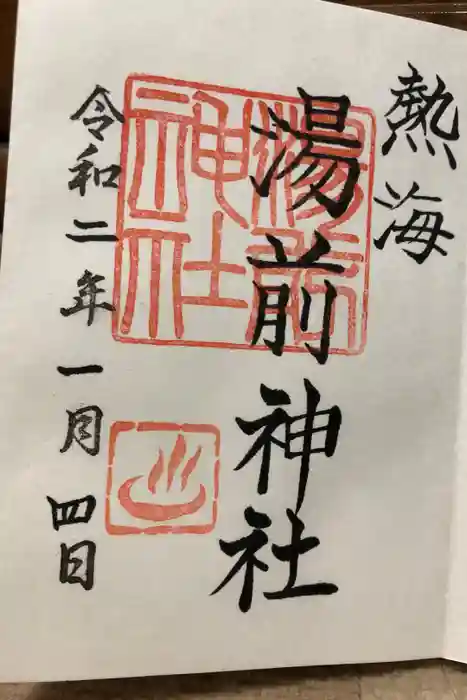 熱海
湯前神社
湯前神社
令和二年一月四日